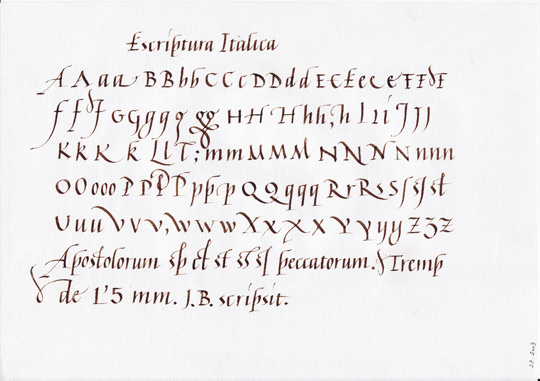 Escriptura Itàlica
A A a a B B b b C C c D D d d E E E e e e F F F F
f f f G G g g g g gg H H H h h, h I i i i J J J
K k K k L l T; m m M M M N N N N n n n
O O o o o P P P P p p p Q Q q q q R r R s S s s st
U u u V v v, w w w X x X x Y Y y y Z Z z
Apostolorum sp ct st ss ss peccatorum. Tremp
de 1'5 mm. J.B. scripsit.